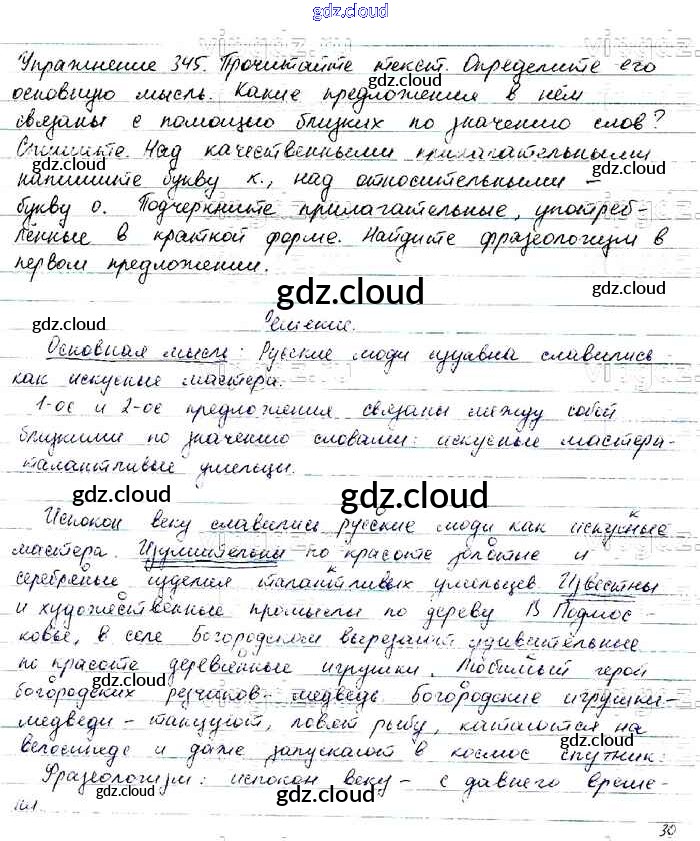 gdz.cloud
Упражнение 345. Прочитайте текст. Определите его
основную мысль. Какие предложения в нём
связаны с помощью близких по значению слов?
Спишите. Над качественными прилагательными
напишите букву к., над относительными –
букву о. Подчеркните прилагательные, употреб-
лённые в краткой форме. Найдите фразеологизм в
первом предложении.
gdz.cloud
Решение.
Основная мысль: Русские люди издавна славились
как искусные мастера.
1-ое и 2-ое предложения связаны между собой
близкими по значению словами: искусные мастера-
талантливые умельцы.
gdz.cloud gdz.cloud
Испокон веку славились русские люди как искусные
мастера. Изумительны по красоте золотые и
серебряные изделия талантливых умельцев. Известны
и художественные промыслы по дереву. В Подмос-
ковье, в селе Богородском вырезают удивительные
по красоте деревянные игрушки. Любимый герой
богородских резчиков- медведь. Богородские игрушки-
медведи - танцуют, ловят рыбу, катаются на
велосипеде и даже запускают в космос спутник.
Фразеологизм: испокон веку - с давнего време-
ни
gdz.cloud
30